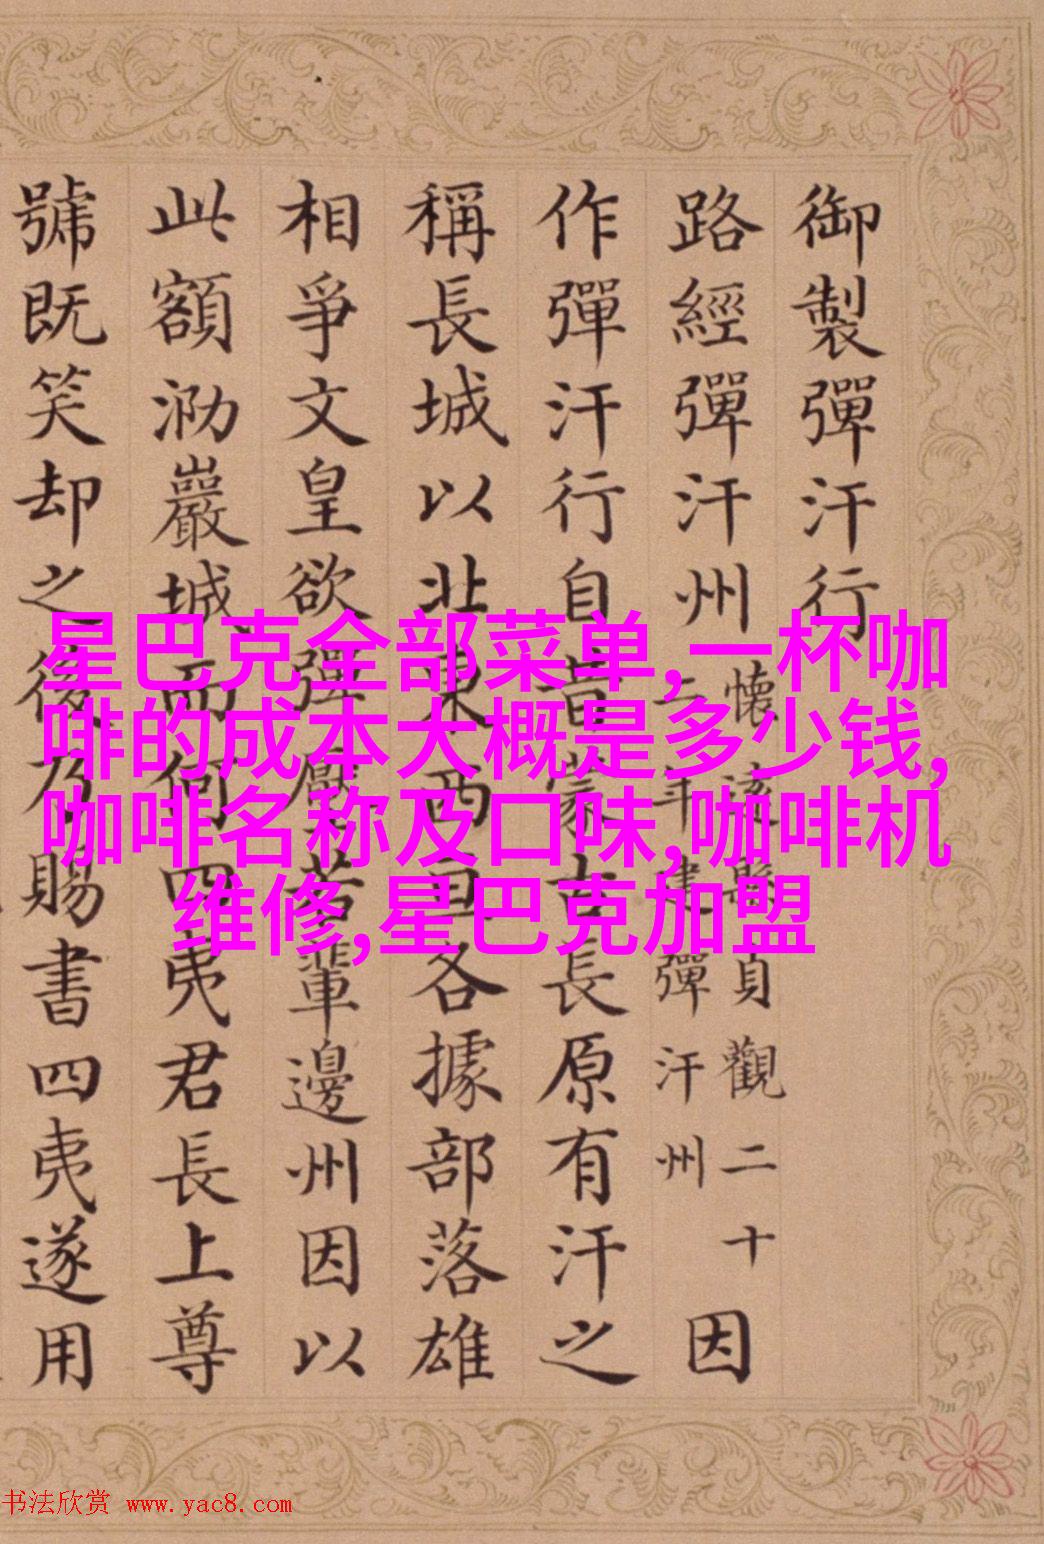 御製彈汗行
路經彈汗州懷遠縣貞觀二十二年建彈汗州因
作彈汗行自昔蒙古長原有汗之
稱長城以北東西自各據部落雄
相爭文皇欲彈壓若輩邊州因以
此額泐巖城而何四夷君長上尊
號既笑却之後乃賜書四夷遂用
星巴克全部菜单,一杯咖
啡的成本大概是多少钱,
咖啡名称及口味,咖啡机
维修,星巴克加盟
书法欣赏 www.yac8.com